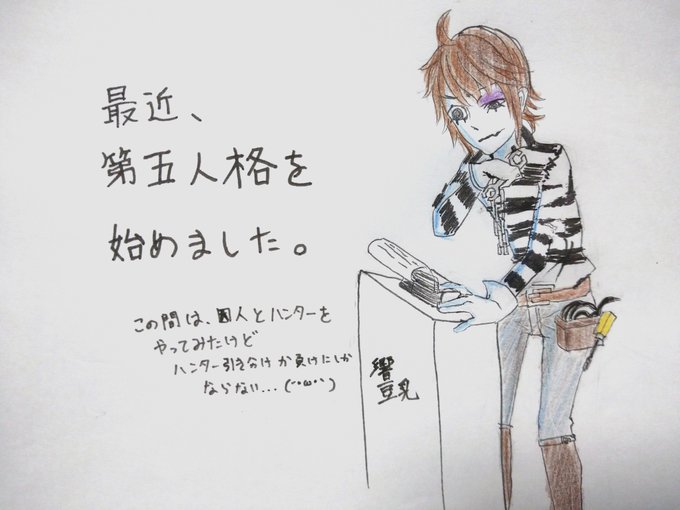 最近、
第五人格を
始めました。
この間は、囚人とハンターを
やってみたけど
ハンター引き分けか負けにしか
ならない...(´･ω･`)
響
豆乳